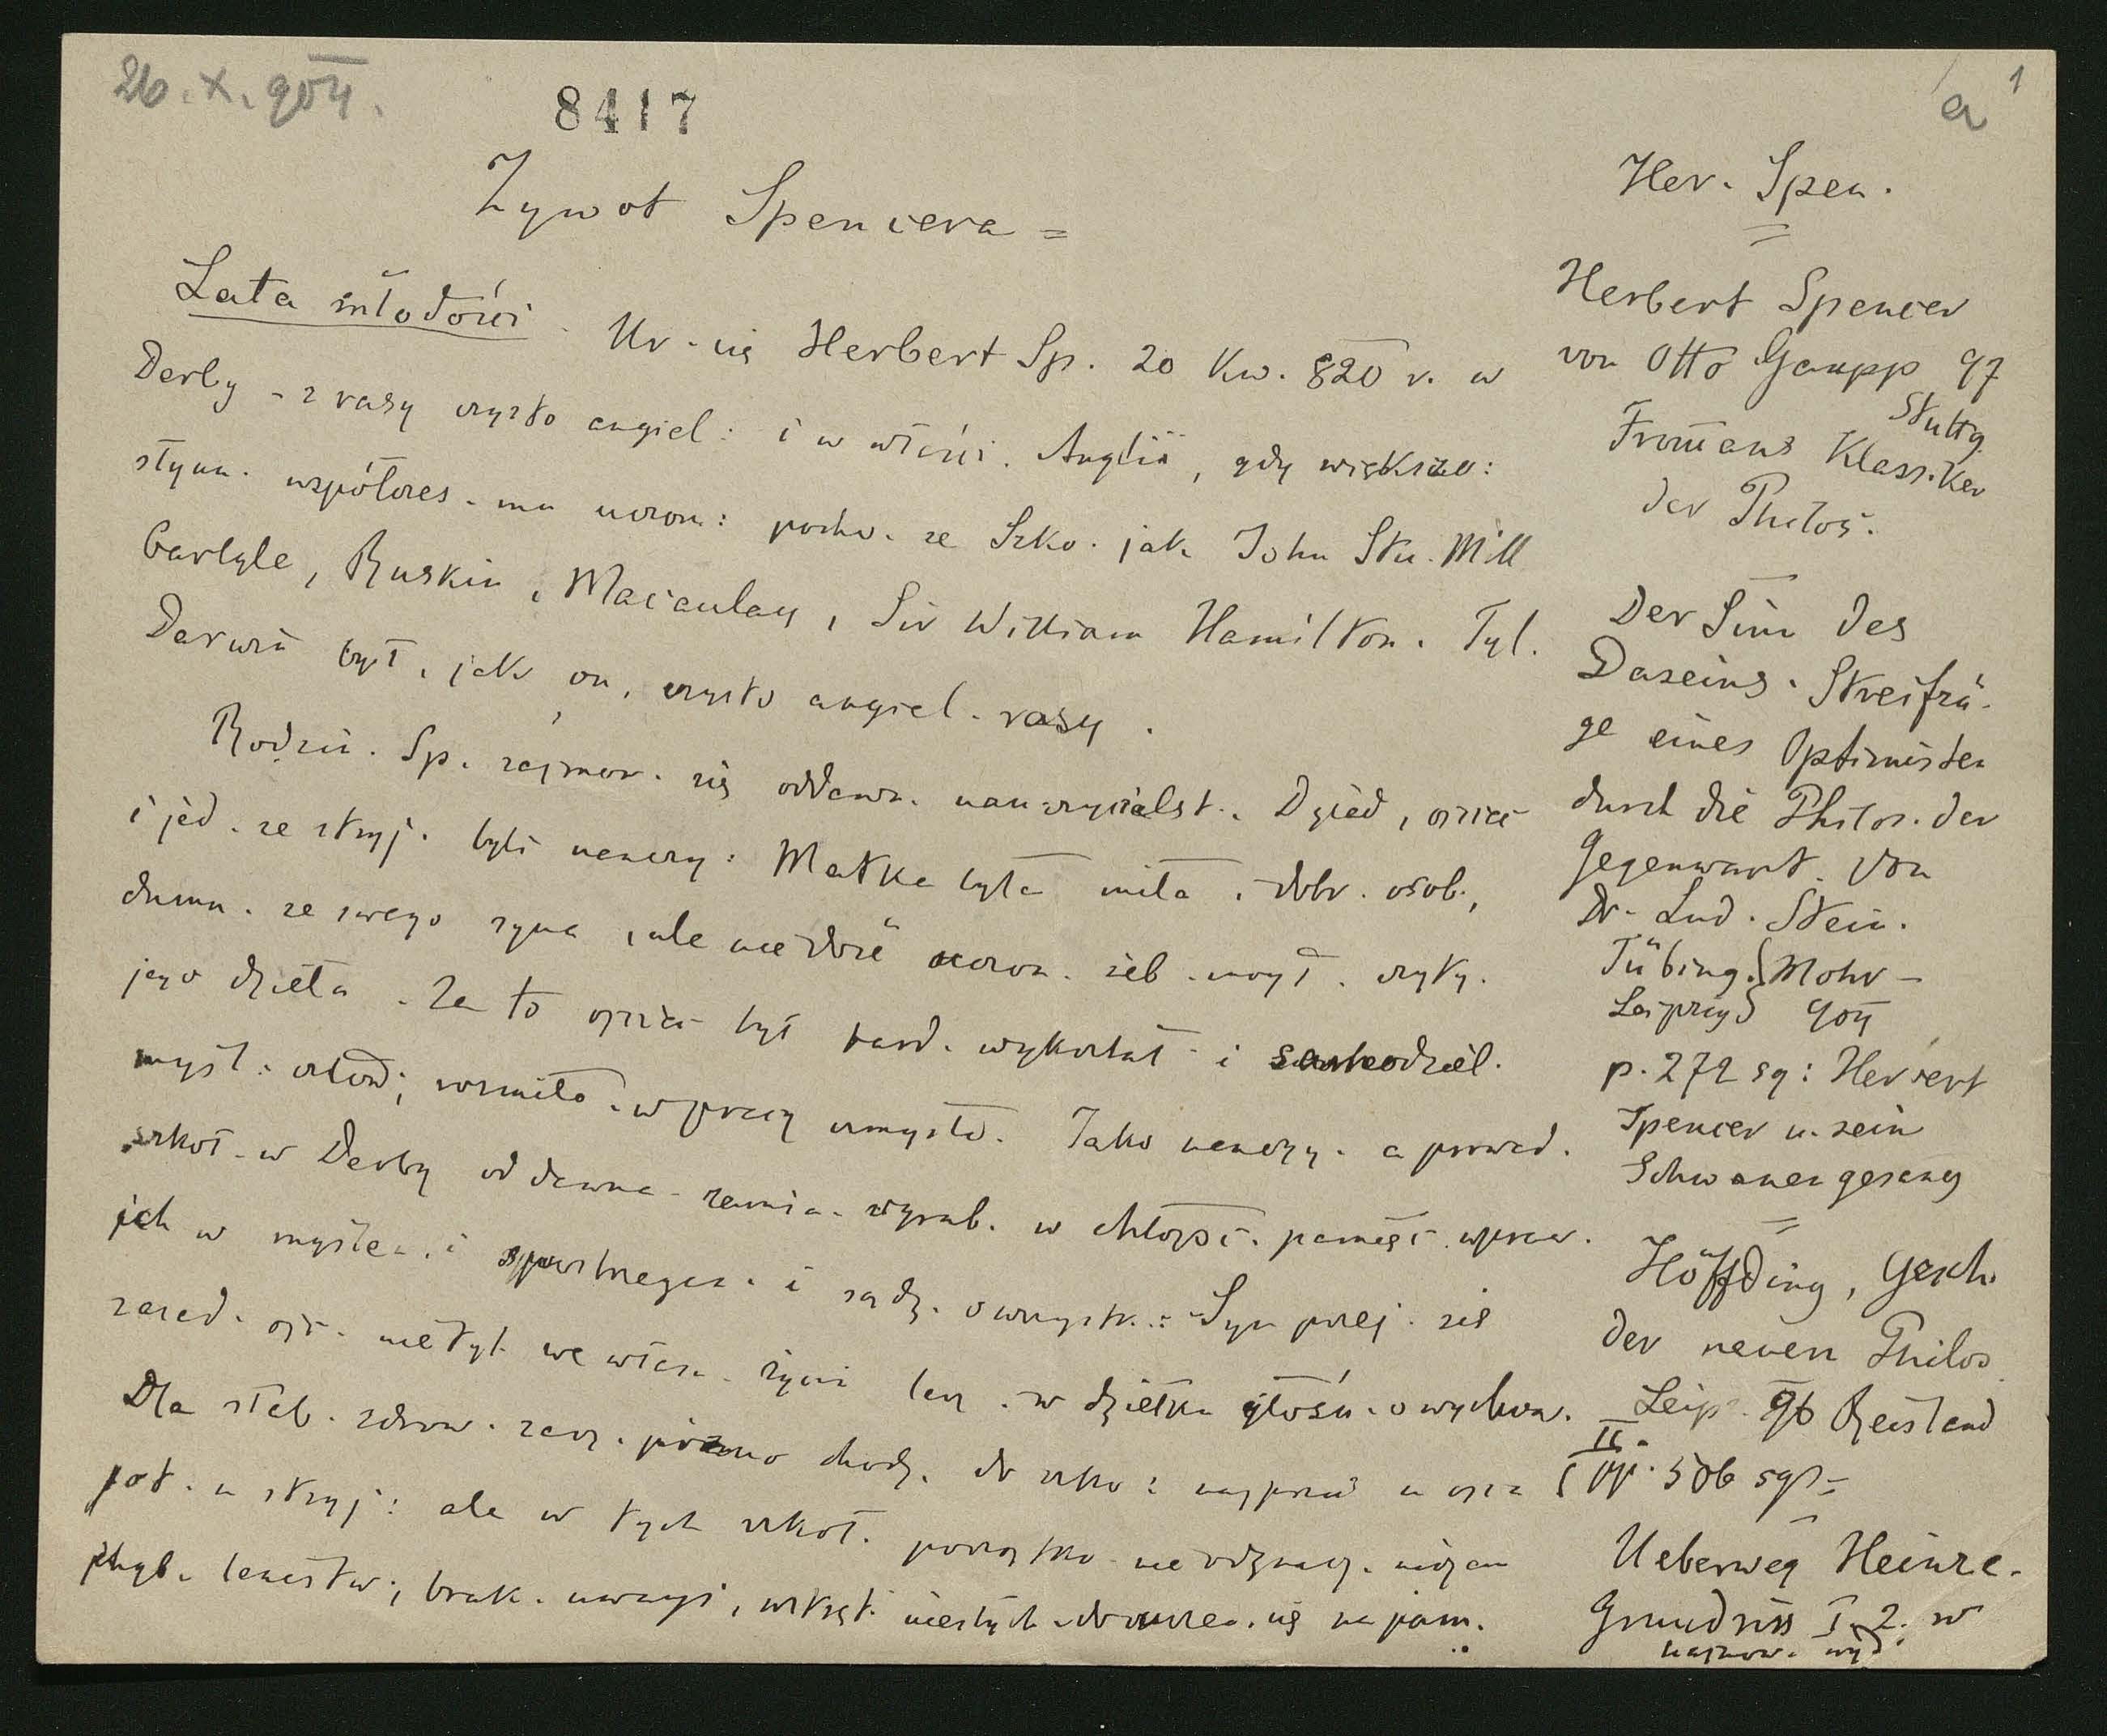 26. X. 904.
8417
a 1
Żywot Spencera =
Lata młodości. Ur. się Herbert Sp. 20 Kw. 820 r. w
Derby – z rasy czysto angiel: i w właści. Anglii, gdy większo:
słynn. współczes. mu uczon: pocho. ze Szko. jak John Stu. Mill
Carlyle, Ruskin, Macaulay, Sir William Hamilton. Tyl.
Darwin był, jak on, czysto angiel. rasy.
Rodzin. Sp. zajmow. się oddawn. nauczycielst. Dziad, ojciec
i jed. ze stryj. byli nauczy: Matka była miła, dobr. osob.,
dumn. ze swego syna, ale nie dość uczon. żeb. mogł. czyty.
jego dzieła. Za to ojciec był bard. wykształ. i samodziel.
myśl. człow; rozmiło. w pracy umysło. Jako nauczy. a prowad.
szkoł. w Derby od dawna zamia. wyrab. w chłopc. pamięć wpraw.
ich w myślen. i spostrzegan. i sądz. o wszystk.: Syn przej. się
zasad. ojc. nie tyl. we własn. życiu lecz w dziełku głośn. o wychow.
Dla słab. zdrow. zacz. pózno chodz. do szko: najpierw u ojca
pot. u stryj: ale w tych szkoł. początko. nie odznacz. niczem
chyb. lenistw; brak. uwagi, wstręt. do uczen. się na pam.
Her. Spen.
=
Herbert Spencer
von Otto Gaupp 97
Stuttg.
Fromans Klassiker
der Philos.
Der Sinn des
Daseins. Streifzü-
ge eines Optimisten
durch die Philos. der
Gegenwart. Von
Dr. Lud. Stein.
Tübing. Mohr –
Leipzig 904
p. 272 sq: Herbert
Spencer u. sein
Schwanengesang
=
Höffding, Gesch.
der neuern Philos
Leip. 96 Reisland
II. pp. 506 sqs =
Ueberweg Heinze.
Grundriss I. 2. w
najnow. wyd.